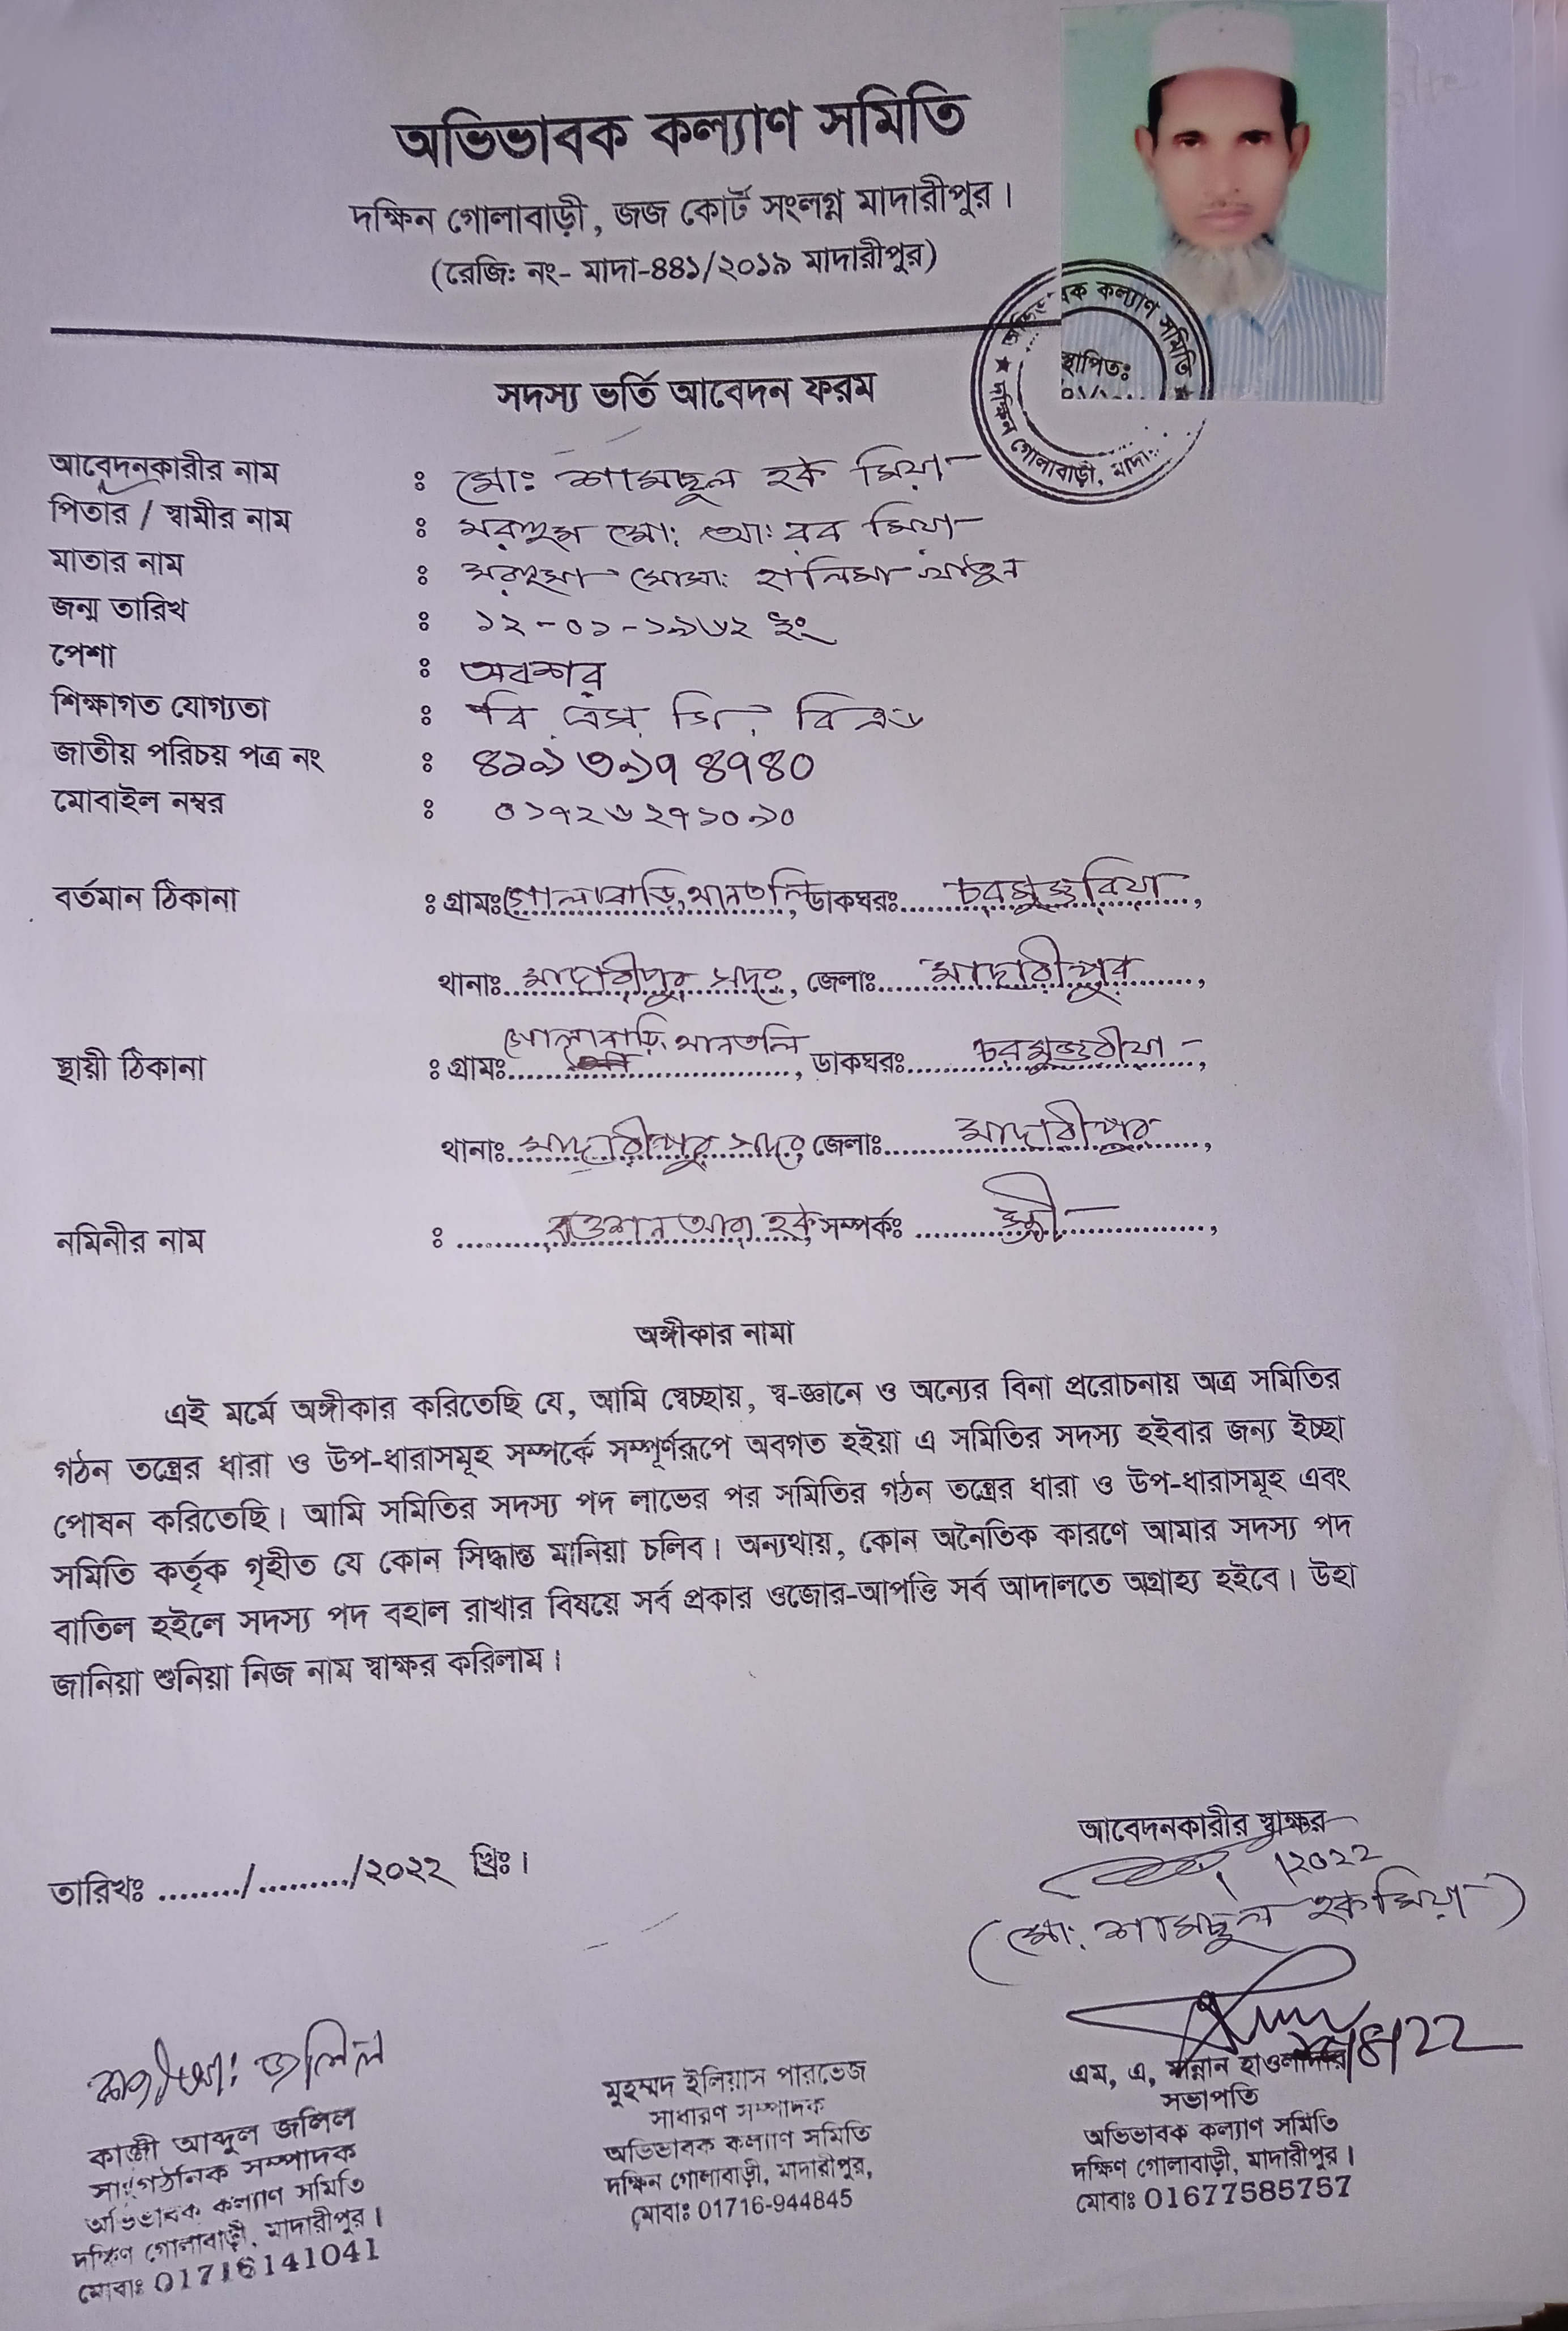 অভিভাবক কল্যাণ সমিতি
দক্ষিন গোলাবাড়ী, জজ কোর্ট সংলগ্ন মাদারীপুর।
(রেজি: নং- মাদা-৪৪১/২০১৯ মাদারীপুর)
ক কল্যাণ সমিতি
স্থাপিতঃ
দক্ষিন গোলাবাড়ী, মাদা
সদস্য ভর্তি আবেদন ফরম
আবেদনকারীর নাম : মোঃ শামছুল হক মিয়া
পিতার / স্বামীর নাম : মরহুম মো: আ: রব মিয়া
মাতার নাম : মরহুমা মোসা: হালিমা খাতুন
জন্ম তারিখ : ১২-০১-১৯৬২ ইং
পেশা : অবশর
শিক্ষাগত যোগ্যতা : বি এস সি, বি এড
জাতীয় পরিচয় পত্র নং :
মোবাইল নম্বর : ০১৭২৬২৭১০৯০
বর্তমান ঠিকানা : গ্রামঃ গোলাবাড়ি, থানতলি, ডাকঘরঃ চরমুগুরিয়া,
থানাঃ মাদারীপুর সদর, জেলাঃ মাদারীপুর,
স্থায়ী ঠিকানা : গ্রামঃ গোলাবাড়ি থানতলি, ডাকঘরঃ চরমুগুরীয়া,
থানাঃ মাদারীপুর সদর, জেলাঃ মাদারীপুর,
নমিনীর নাম : রওশন আরা হক সম্পর্কঃ স্ত্রী,
অঙ্গীকার নামা
এই মর্মে অঙ্গীকার করিতেছি যে, আমি স্বেচ্ছায়, স্ব-জ্ঞানে ও অন্যের বিনা প্ররোচনায় অত্র সমিতির
গঠন তন্ত্রের ধারা ও উপ-ধারাসমূহ সম্পর্কে সম্পূর্ণরূপে অবগত হইয়া এ সমিতির সদস্য হইবার জন্য ইচ্ছা
পোষন করিতেছি। আমি সমিতির সদস্য পদ লাভের পর সমিতির গঠন তন্ত্রের ধারা ও উপ-ধারাসমূহ এবং
সমিতি কর্তৃক গৃহীত যে কোন সিদ্ধান্ত মানিয়া চলিব। অন্যথায়, কোন অনৈতিক কারণে আমার সদস্য পদ
বাতিল হইলে সদস্য পদ বহাল রাখার বিষয়ে সর্ব প্রকার ওজোর-আপত্তি সর্ব আদালতে অগ্রাহ্য হইবে। উহা
জানিয়া শুনিয়া নিজ নাম স্বাক্ষর করিলাম।
আবেদনকারীর স্বাক্ষর
তারিখঃ ......../........./২০২২ খ্রিঃ।
২০২২
(মো: শামছুল হক মিয়া)
জলিল
কাজী আব্দুল জলিল
সাংগঠনিক সম্পাদক
অভিভাবক কল্যাণ সমিতি
দক্ষিণ গোলাবাড়ী, মাদারীপুর।
মোবাঃ 01716141041
মুহম্মদ ইলিয়াস পারভেজ
সাধারণ সম্পাদক
অভিভাবক কল্যাণ সমিতি
দক্ষিন গোলাবাড়ী, মাদারীপুর,
মোবাঃ 01716-944845
এম, এ, মান্নান হাওলাদার
সভাপতি
অভিভাবক কল্যাণ সমিতি
দক্ষিণ গোলাবাড়ী, মাদারীপুর।
মোবাঃ 01677585757